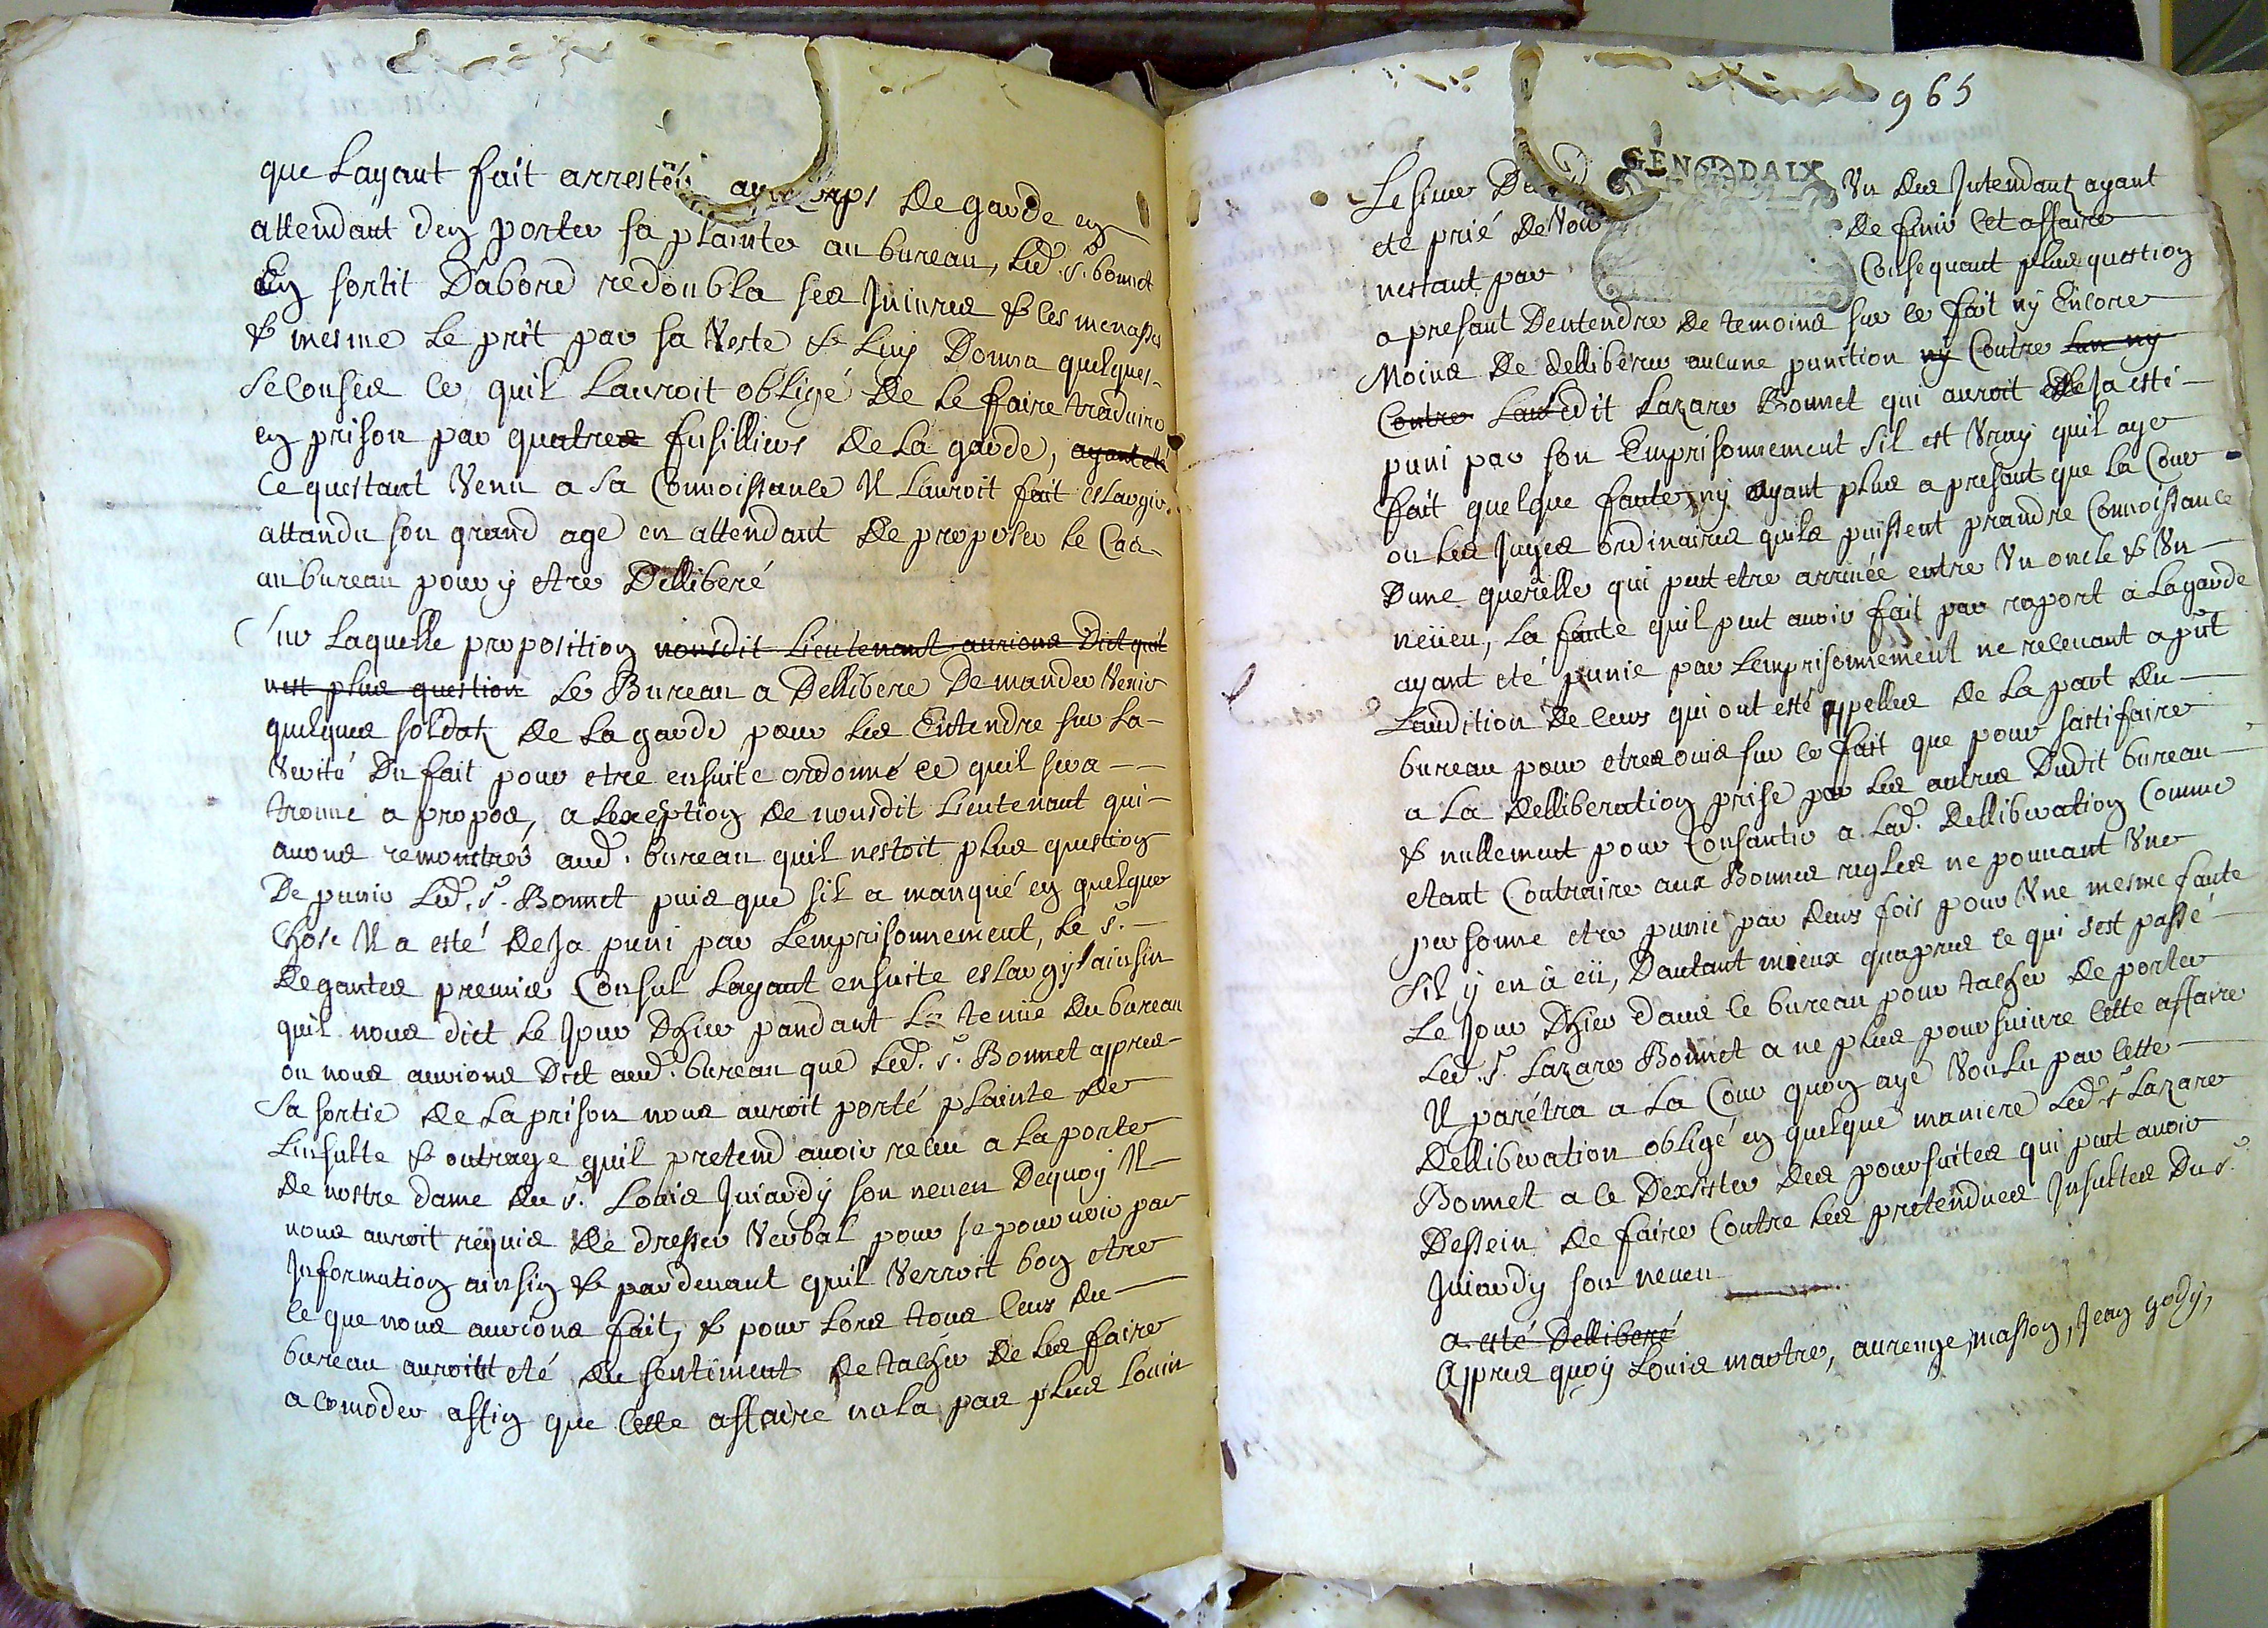 que Layant fait arrester au corps de garde en
attendant den porter sa plainte au bureau, led. sr. bonnet
En sortit D'abord redoubla ses Iniures & ces menasses
& mesme le prit par sa Veste & Luy Donna quelques
secousses ce quil Lauroit obligé de le faire traduire
en prison par quatre fusilliers de La garde, ayant été
ce questant Venu a sa Connoissance Il Lauroit fait eslargir
attandu son grand age en attendant de proposer le Cas
au bureau pour y etre Delliberé
Sur Laquelle proposition nousdit Lieutenant aurions Dict quil
nest plus question Le Bureau a Dellibere De mander Venir
quelques soldats de La garde pour les Entendre sur La
Verité Du fait pour etre ensuite ordonné ce quil sera
trouvé a propos, a Lexeption de nousdit Lieutenant qui
avons remonstré aud. bureau quil nestoit plus question
De punir Led. sr. Bonnet puis que sil a manqué en quelque
chose Il a esté deja puni par Lemprisonnement, Le sr.
Degantes premier Consul Layant ensuite eslargy ainsin
quil nous dict Le Jour Dhier pandant La tenüe du bureau
ou nous aurions Dict aud. bureau que Led. sr. Bonnet appres
sa sortie de La prison nous auroit porté plainte de
Linsulte & outrage quil pretend avoir receu a La porte
de nostre dame du sr. Louis Juiardy son neveu Dequoy Il
nous auroit requis de dresser Verbal pour se pourvoir par
Information ainsin & pardevant quil Verroit bon etre
ce que nous aurions fait, & pour Lors tous ceux du
bureau auroint eté du sentiment de tacher de Les faire
acomoder affin que cette affaire nala pas plus Louin
965
GEN DAIX
Le sieur De Un des Intendants ayant
eté prié de Voir de finir cet affaire
nestant par Consequant plus question
a presant Dentendre de temoins sur ce fait ny Encore
Moins de delliberer aucune punition ny Contre Lun ny
Contre Lau Ledit Lazare Bonnet qui auroit deja esté
puni par son Emprisonnement sil est Vray quil aye
fait quelque faute, ny ayant plus a presant que La Cour
ou Les Juges ordinaires quils puissent prandre Connoissance
Dune querelle qui peut etre arrivée entre Un oncle & Un
neveu, La faute quil peut avoir fait par raport a La garde
ayant eté punie par Lemprisonnement ne relevant a pnt
Laudition de ceux qui ont esté appelles de La part du
bureau pour etre ouis sur ce fait que pour sastifaire
a La delliberation prise par Les autres Dudit bureau
& nullement pour Consantir a Lad. delliberation Comme
etant Contraire aux Bonnes regles ne pouvant Une
personne etre punie par deux fois pour Une mesme faute
sil y en à eü, Dautant mieux quapres ce qui s'est passé
Le Jour Dhier dans le bureau pour tacher de porter
Led. sr. Lazare Bonnet a ne plus poursuivre cette affaire
Il parétra a La Cour quon aye Voulu par cette
delliberation obligé en quelque maniere Led. sr Lazare
Bonnet a ce Dexsister des poursuites qui peut avoir
Dessein de faire Contre Les pretendues Insultes Du sr.
Juiardy son neveu
a esté Delliberé
Appres quoy Louis martre, aurenge, masson, Jean gody,